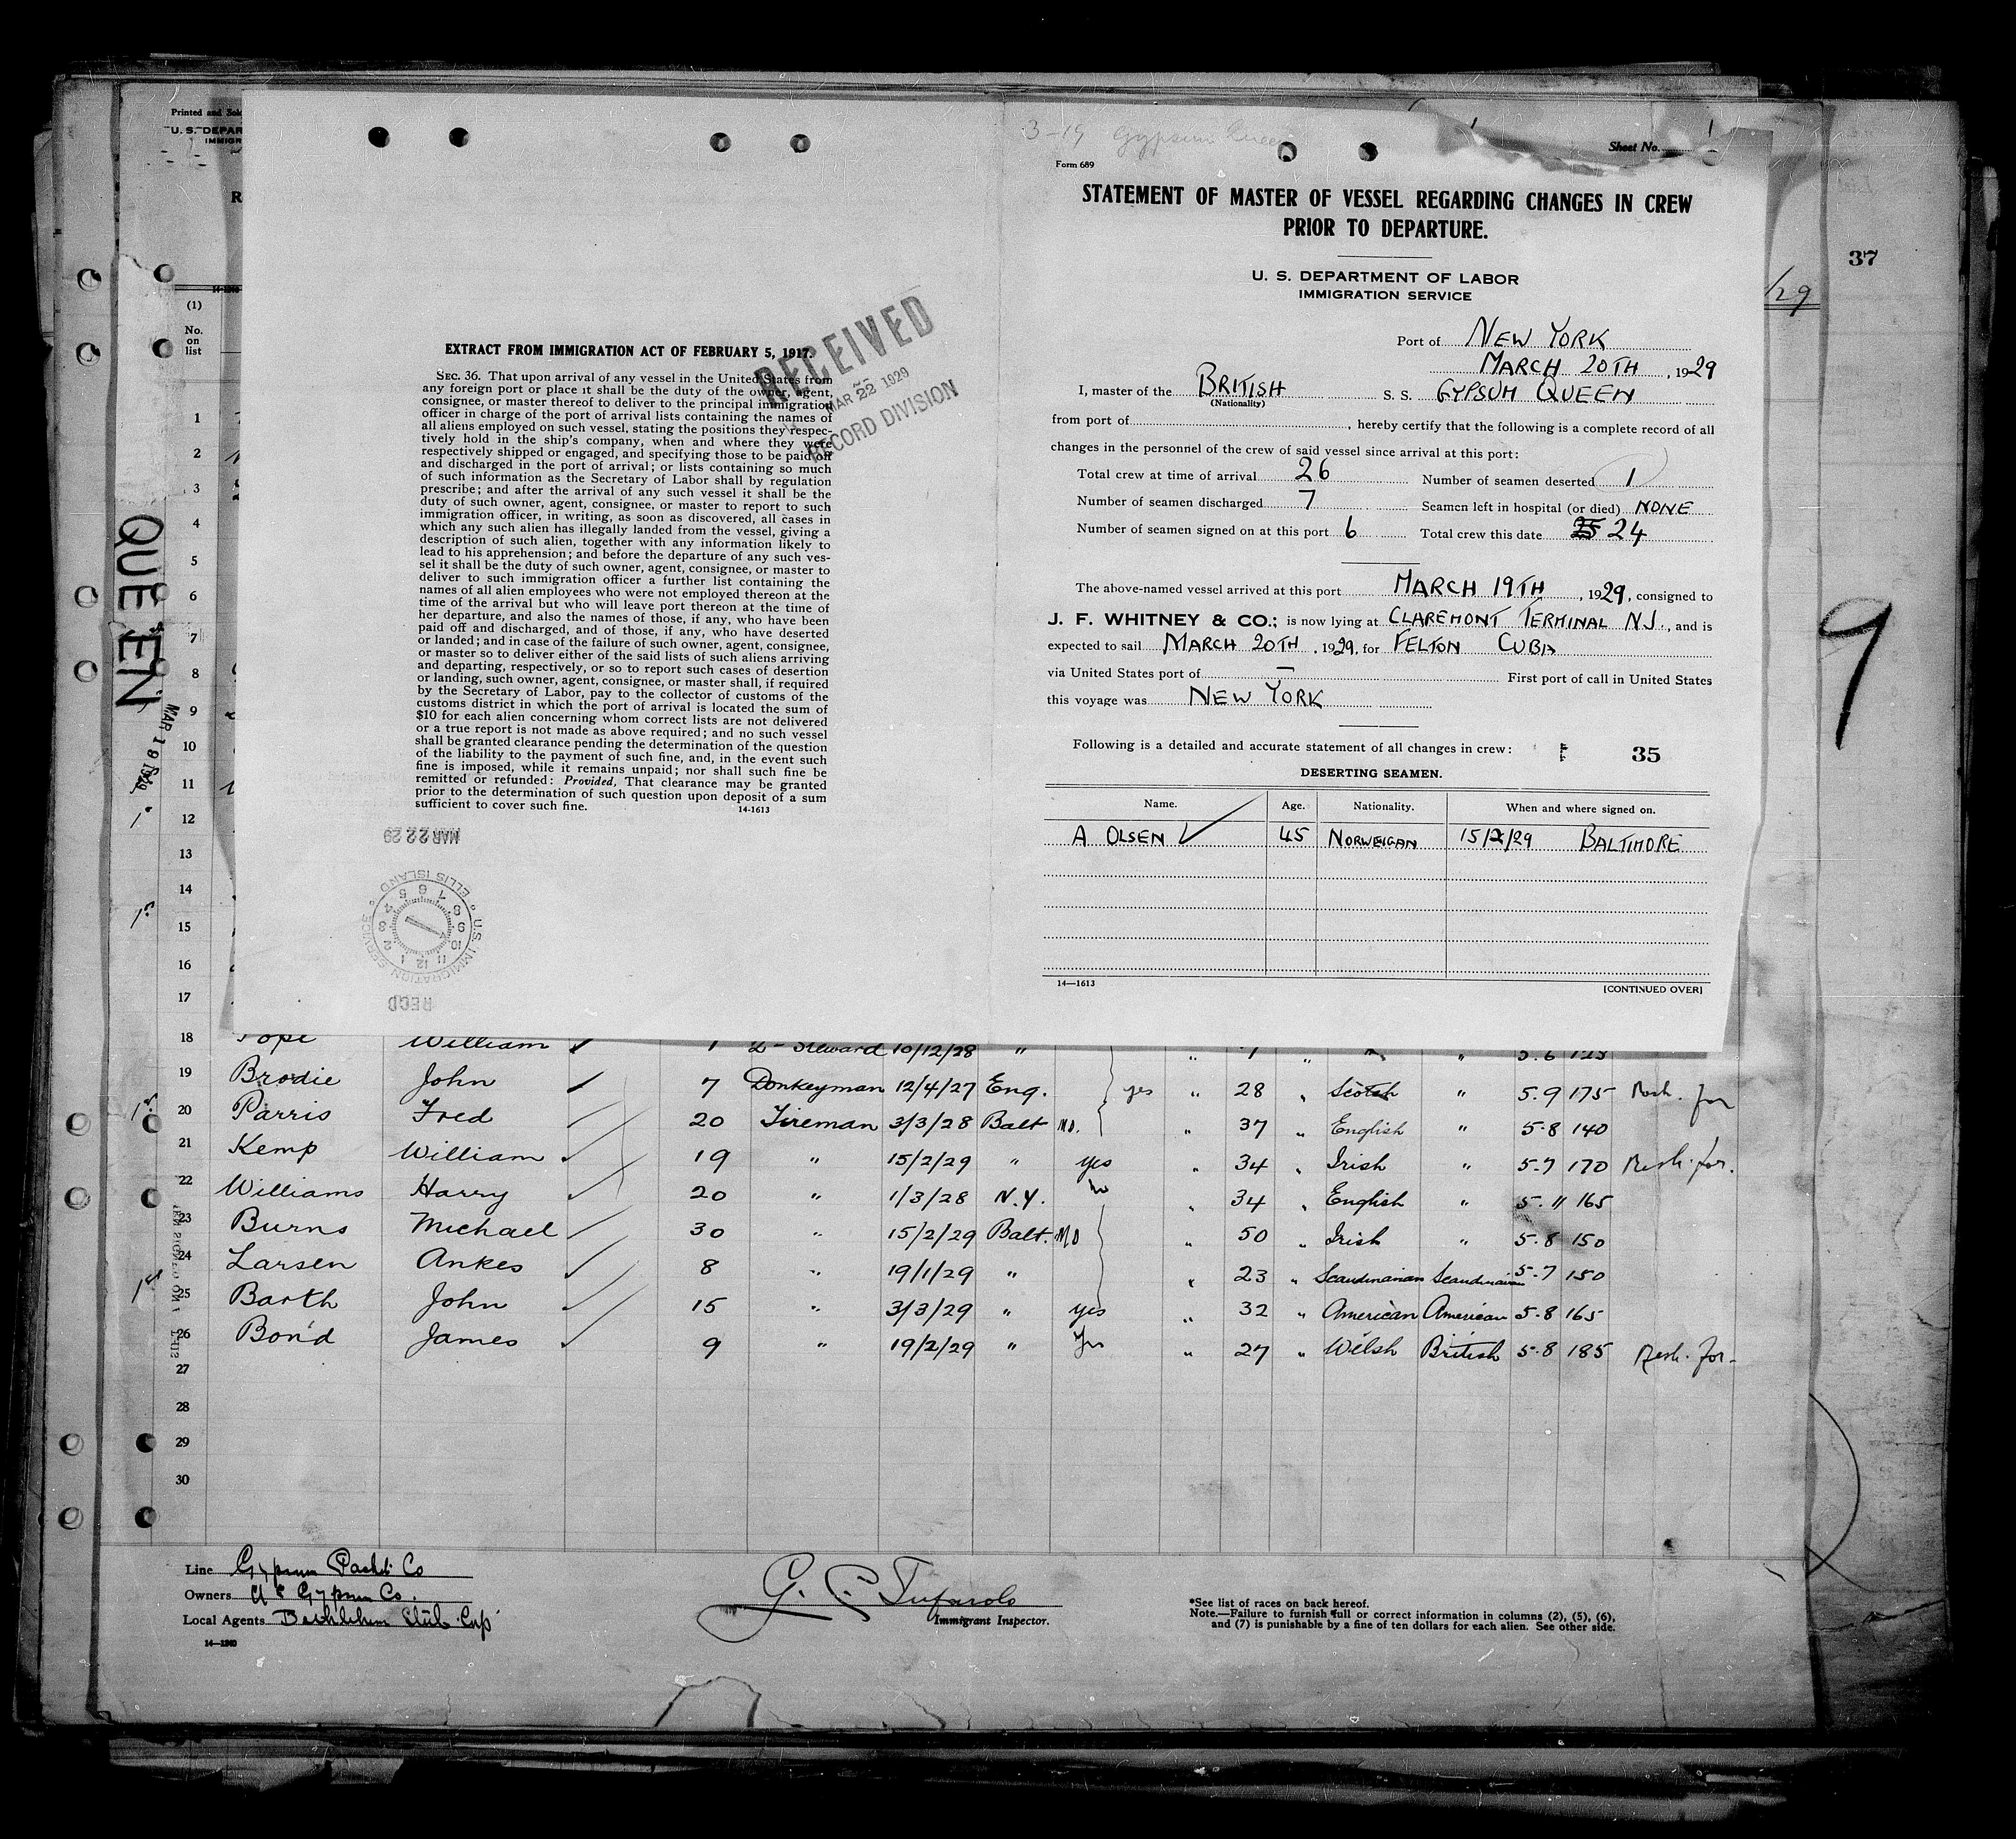 Printed and Sol
U. S. DEPAR
IMMIGR
R
(1)
No.
on
list
QUEEN
EXTRACT FROM IMMIGRATION ACT OF FEBRUARY 5, 1917.
SEC. 36. That upon arrival of any vessel in the United States from
any foreign port or place it shall be the duty of the owner, agent,
consignee, or master thereof to deliver to the principal immigration
officer in charge of the port of arrival lists containing the names of
all aliens employed on such vessel, stating the positions they respec-
tively hold in the ship's company, when and where they were
respectively shipped or engaged, and specifying those to be paid off
and discharged in the port of arrival; or lists containing so much
of such information as the Secretary of Labor shall by regulation
prescribe; and after the arrival of any such vessel it shall be the
duty of such owner, agent, consignee, or master to report to such
immigration officer, in writing, as soon as discovered, all cases in
which any such alien has illegally landed from the vessel, giving a
description of such alien, together with any information likely to
lead to his apprehension; and before the departure of any such ves-
sel it shall be the duty of such owner, agent, consignee, or master to
deliver to such immigration officer a further list containing the
names of all alien employees who were not employed thereon at the
time of the arrival but who will leave port thereon at the time of
her departure, and also the names of those, if any, who have been
paid off and discharged, and of those, if any, who have deserted
or landed; and in case of the failure of such owner, agent, consignee,
or master so to deliver either of the said lists of such aliens arriving
and departing, respectively, or so to report such cases of desertion
or landing, such owner, agent, consignee, or master shall, if required
by the Secretary of Labor, pay to the collector of customs of the
customs district in which the port of arrival is located the sum of
$10 for each alien concerning whom correct lists are not delivered
or a true report is not made as above required; and no such vessel
shall be granted clearance pending the determination of the question
of the liability to the payment of such fine, and, in the event such
fine is imposed, while it remains unpaid; nor shall such fine be
remitted or refunded: Provided, That clearance may be granted
prior to the determination of such question upon deposit of a sum
sufficient to cover such fine.
14-1613
RECEIVED
MAR 22 1929
RECORD DIVISION
MAR 22 29
U.S. IMMIGRATION SERVICE
ELLIS ISLAND
RECD
3-19 Gypsum Queen
Sheet No.
Form 689
STATEMENT OF MASTER OF VESSEL REGARDING CHANGES IN CREW
PRIOR TO DEPARTURE.
U. S. DEPARTMENT OF LABOR
IMMIGRATION SERVICE
Port of NEW YORK
MARCH 20TH, 1929
I, master of the BRITISH S. S. GYPSUM QUEEN
(Nationality)
from port of , hereby certify that the following is a complete record of all
changes in the personnel of the crew of said vessel since arrival at this port:
Total crew at time of arrival 26 Number of seamen deserted 1
Number of seamen discharged 7 Seamen left in hospital (or died) NONE
Number of seamen signed on at this port 6 Total crew this date 25 24
The above-named vessel arrived at this port MARCH 19TH, 1929, consigned to
J. F. WHITNEY & CO.; is now lying at CLAREMONT TERMINAL N.J., and is
expected to sail MARCH 20TH, 1929, for FELTON CUBA
via United States port of — First port of call in United States
this voyage was NEW YORK
Following is a detailed and accurate statement of all changes in crew:
35
DESERTING SEAMEN.
Name. Age. Nationality. When and where signed on.
A OLSEN 45 NORWEIGAN 15/2/29 BALTIMORE
14—1613 [CONTINUED OVER]
37
/29
9
1
2
3
4
5
6
7
8
9
10
11
12
13
14
15
16
17
18 Pope William 1 2nd Steward 10/12/28 " " " " 5.6 125
19 Brodie John 7 Donkeyman 12/4/27 Eng. yes " 28 " Scotch " 5.9 175
20 Parris Fred 20 Fireman 3/3/28 Balt MD. " 37 " English " 5.8 140
21 Kemp William 19 " 15/2/29 " yes " 34 " Irish " 5.7 170
22 Williams Harry 20 " 1/3/28 N.Y. " 34 " English " 5.11 165
23 Burns Michael 30 " 15/2/29 Balt. MD " 50 " Irish " 5.8 150
24 Larsen Ankes 8 " 19/1/29 " " 23 " Scandinavian Scandinavian 5.7 150
25 Barth John 15 " 3/3/29 " yes " 32 " American American 5.8 165
26 Bond James 9 " 19/2/29 " yes " 27 " Welsh British 5.8 185
27
28
29
30
Line Gypsum Packet Co
Owners U S Gypsum Co.
Local Agents Bethlehem Steel Corp
14—1240
Immigrant Inspector.
*See list of races on back hereof.
Note.—Failure to furnish full or correct information in columns (2), (5), (6),
and (7) is punishable by a fine of ten dollars for each alien. See other side.